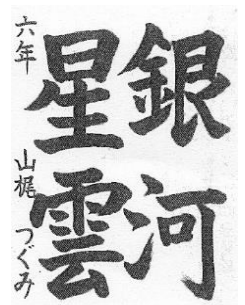 銀河
星雲
六年 山梶 つぐみ